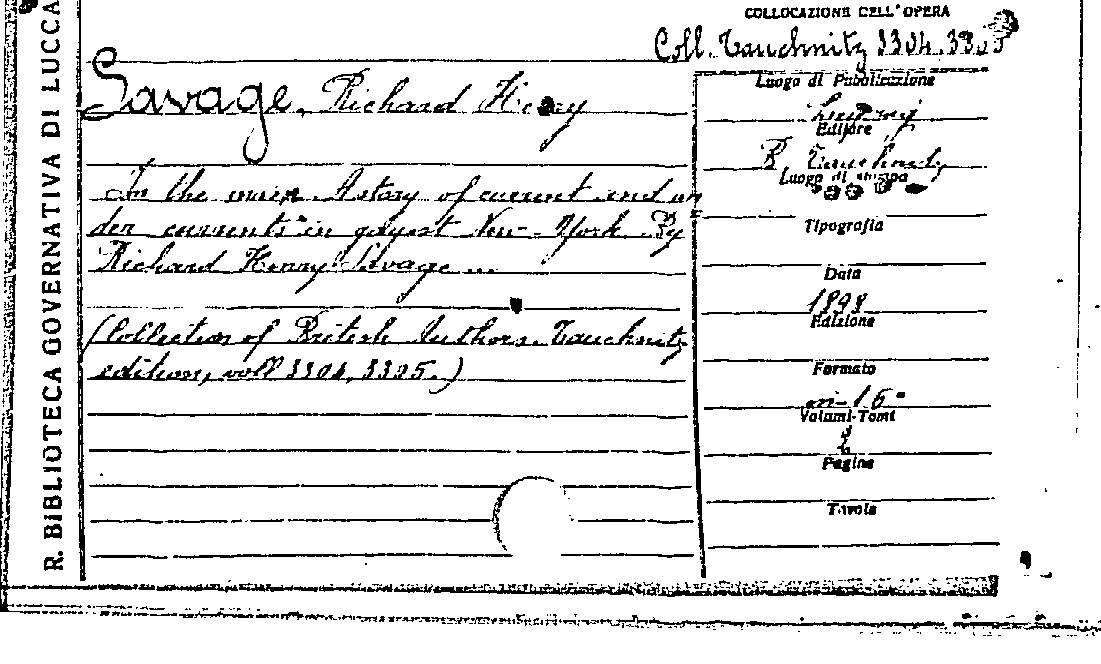 R. BIBLIOTECA GOVERNATIVA DI LUCCA
COLLOCAZIONE DELL'OPERA
Coll. Tauchnitz 3304.3305
Savage, Richard Henry
In the A story of current and un
der currents in gayest New-York By
Richard Henry Savage ...
(Collection of British Authors. Tauchnitz
edition, voll 3304, 3305.)
Luogo di Pubblicazione
Editore
B. Tauchnitz
Luogo di stampa
Tipografia
Data
1898
Edizione
Formato
in-16°
Volumi-Tomi
2
Pagine
Tavole